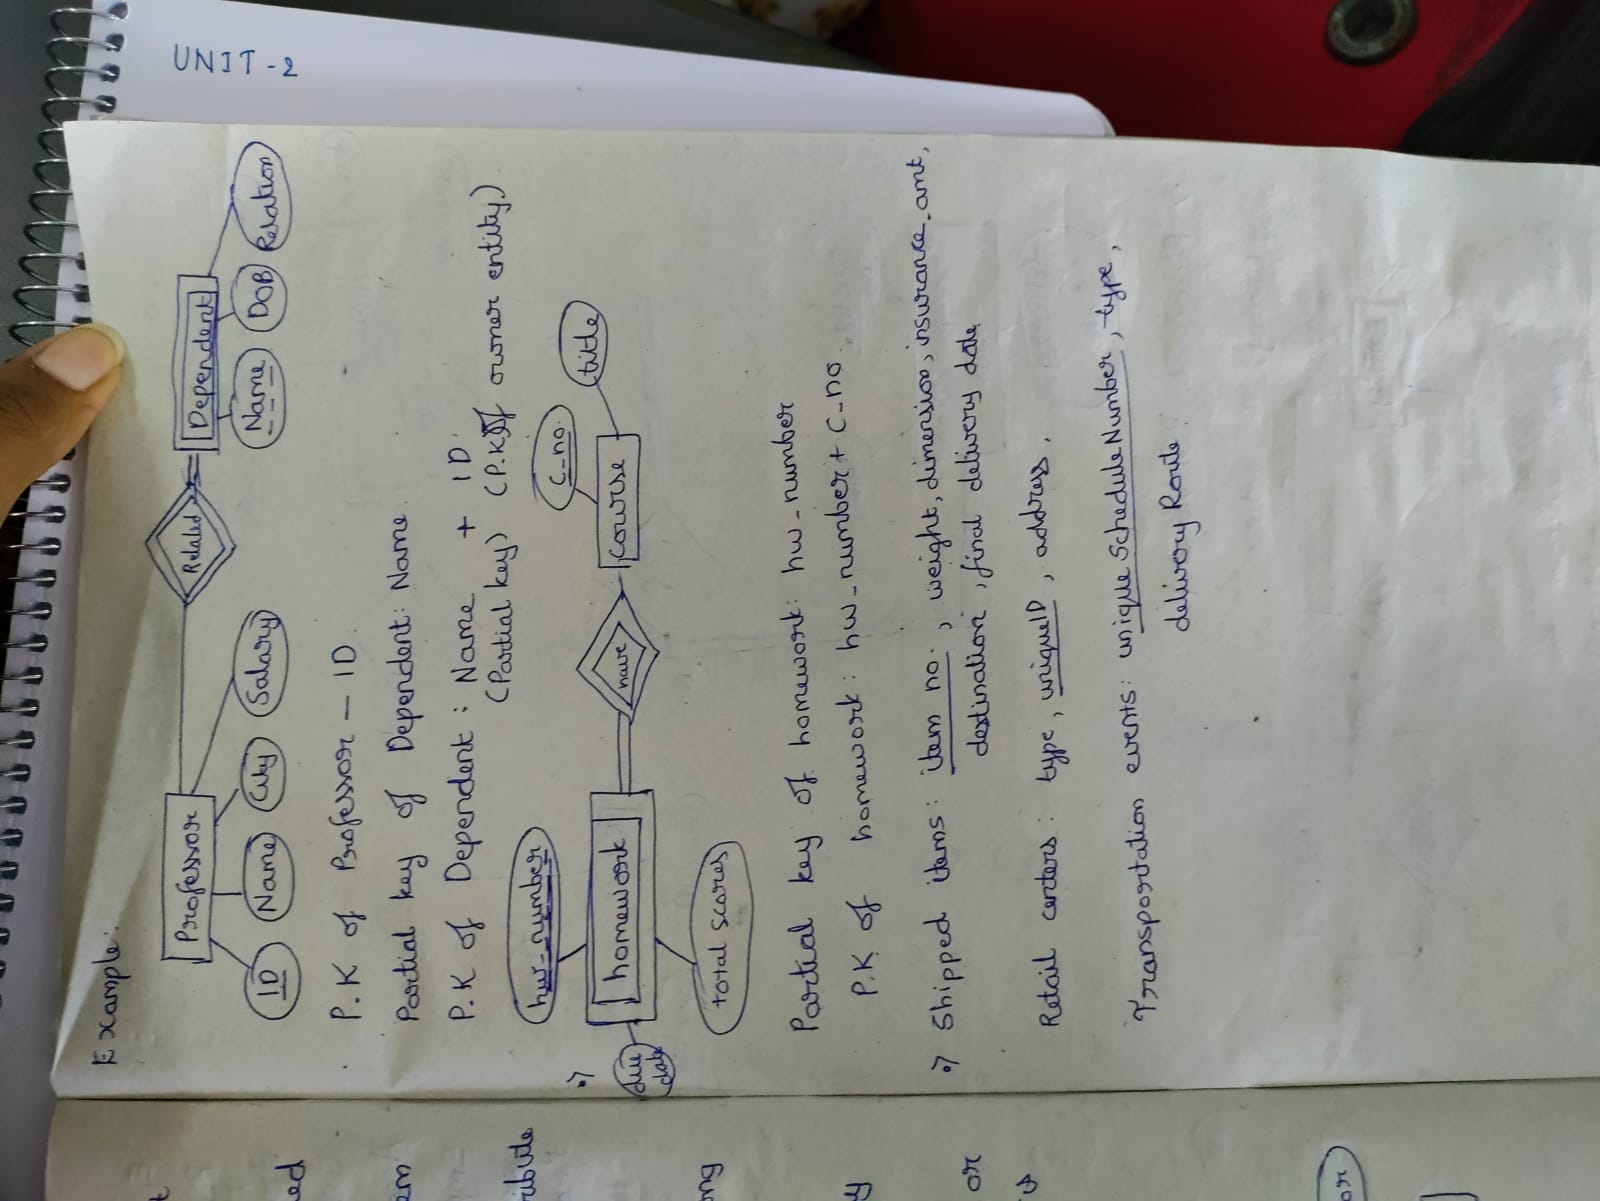 Example:
Professor
Related
Dependent
ID
Name
City
Salary
Name
DOB
Relation
P.K of Professor - ID.
Partial key of Dependent: Name.
P.K of Dependent: Name + ID.
(Partial key) (P.K of owner entity.)
hw_number
c_no.
title
homework
have
course
due
date
total scores
Partial key of homework: hw_number
P.K of homework: hw_number + c_no.
•) Shipped items: item no., weight, dimension, insurance_amt,
destination, final delivery date
Retail centers: type, uniqueID, address,
Transportation events: unique Schedule Number, type,
delivery Route.
UNIT-2
t
ed
em
ribute
ng
y
or
or